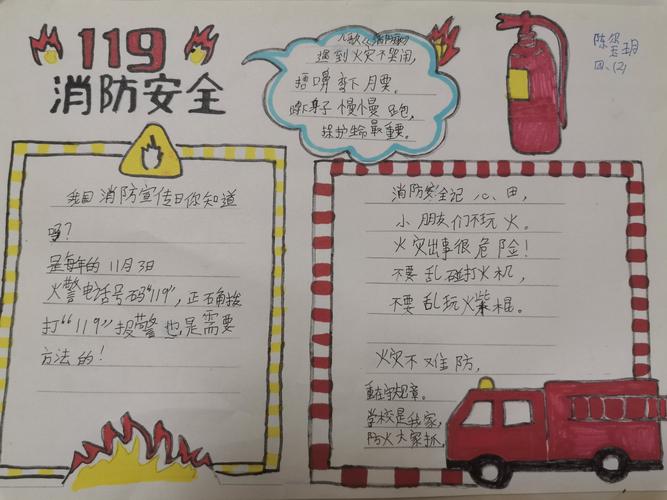 119
消防安全
儿歌《消防歌》
遇到火灾不哭闹,
捂嘴弯下腰。
蹲身子慢慢跑,
保护生命最重要。
陈
玥
四、(2)
我国消防宣传日你知道
吗?
是每年的11月3日
火警电话号码"119",正确拨
打"119"报警也是需要
方法的!
消防安全记心田,
小朋友们不玩火。
火灾出事很危险!
不要乱碰打火机,
不要乱玩火柴棍。
火灾不难防,
重在守规章。
学校是我家,
防火大家抓,